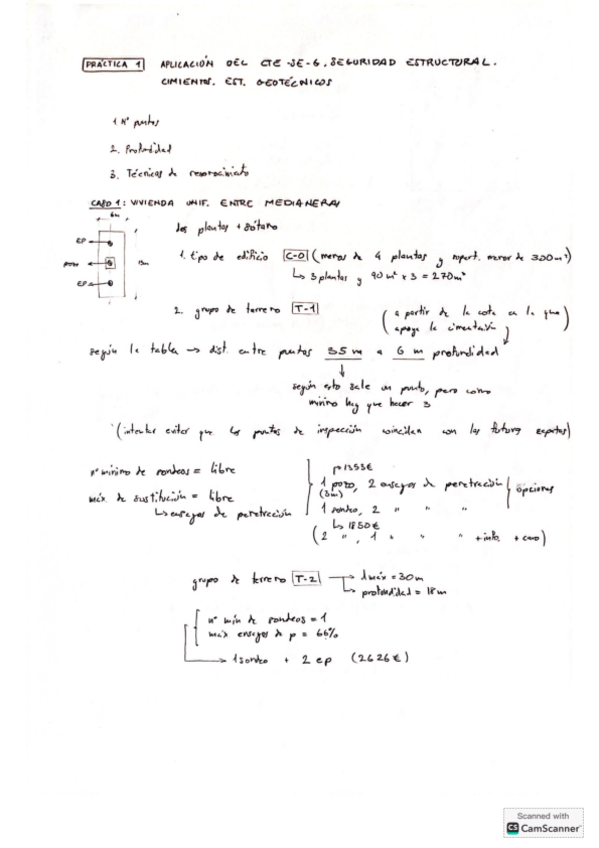 PRÁCTICA 1 APLICACIÓN DEL CTE-SE-6. SEGURIDAD ESTRUCTURAL.
CIMIENTOS. EST. GEOTÉCNICOS
1. Nº puntos
2. Profundidad
3. Técnicas de reconocimiento
CASO 1: VIVIENDA UNIF. ENTRE MEDIANERAS
6m
dos plantas + sótano
EP
POZO
EP
15m
1. tipo de edificio C-0 (menos de 4 plantas y supert. menor de 300m²)
↳ 3 plantas y 90m² x 3 = 270m²
2. grupo de terreno T-1 (a partir de la cota en la que
apoye la cimentación)
según la tabla → dist. entre puntos 35 m a 6 m profundidad
según esto sale un punto, pero como
mínimo hay que hacer 3
(intentar evitar que los puntos de inspección coincidan con las futuras zapatas)
nº mínimo de sondeos = libre
máx. de sustitución = libre
↳ ensayos de penetración
1353€
1 pozo, 2 ensayos de penetración
(3m)
1 sondeo, 2 " " "
opciones
↳ 1850€
(2 ", 1 " " " + info. + caro)
grupo de terreno T-2 → dmáx = 30m
↳ profundidad = 18m
nº mín de sondeos = 1
máx ensayos de p = 66%
→ 1 sondeo + 2 ep (2626€)
Scanned with
CS CamScanner